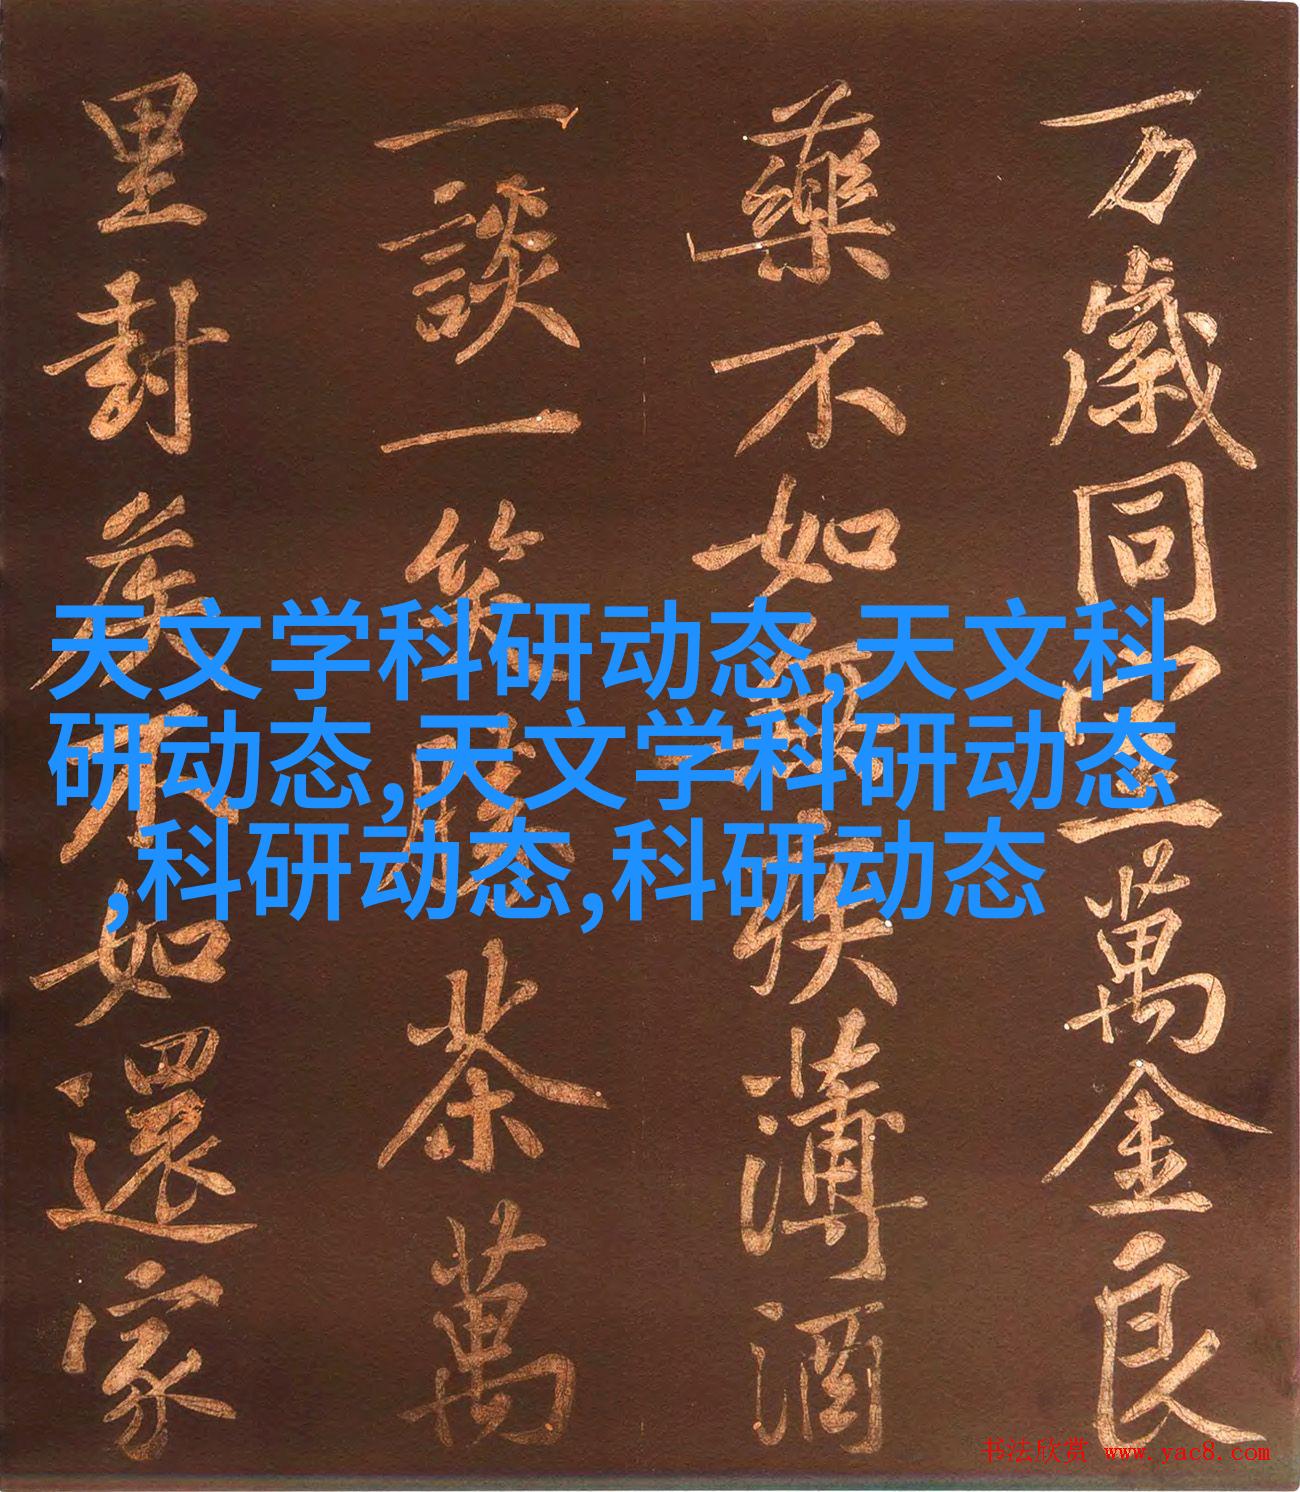 万歲同室萬金良
藥不如無疾薄酒
一談一笑勝茶萬
里封侯不如還家
天文学科研动态,天文科
研动态,天文学科研动态
,科研动态,科研动态
书法欣赏 www.yac8.com